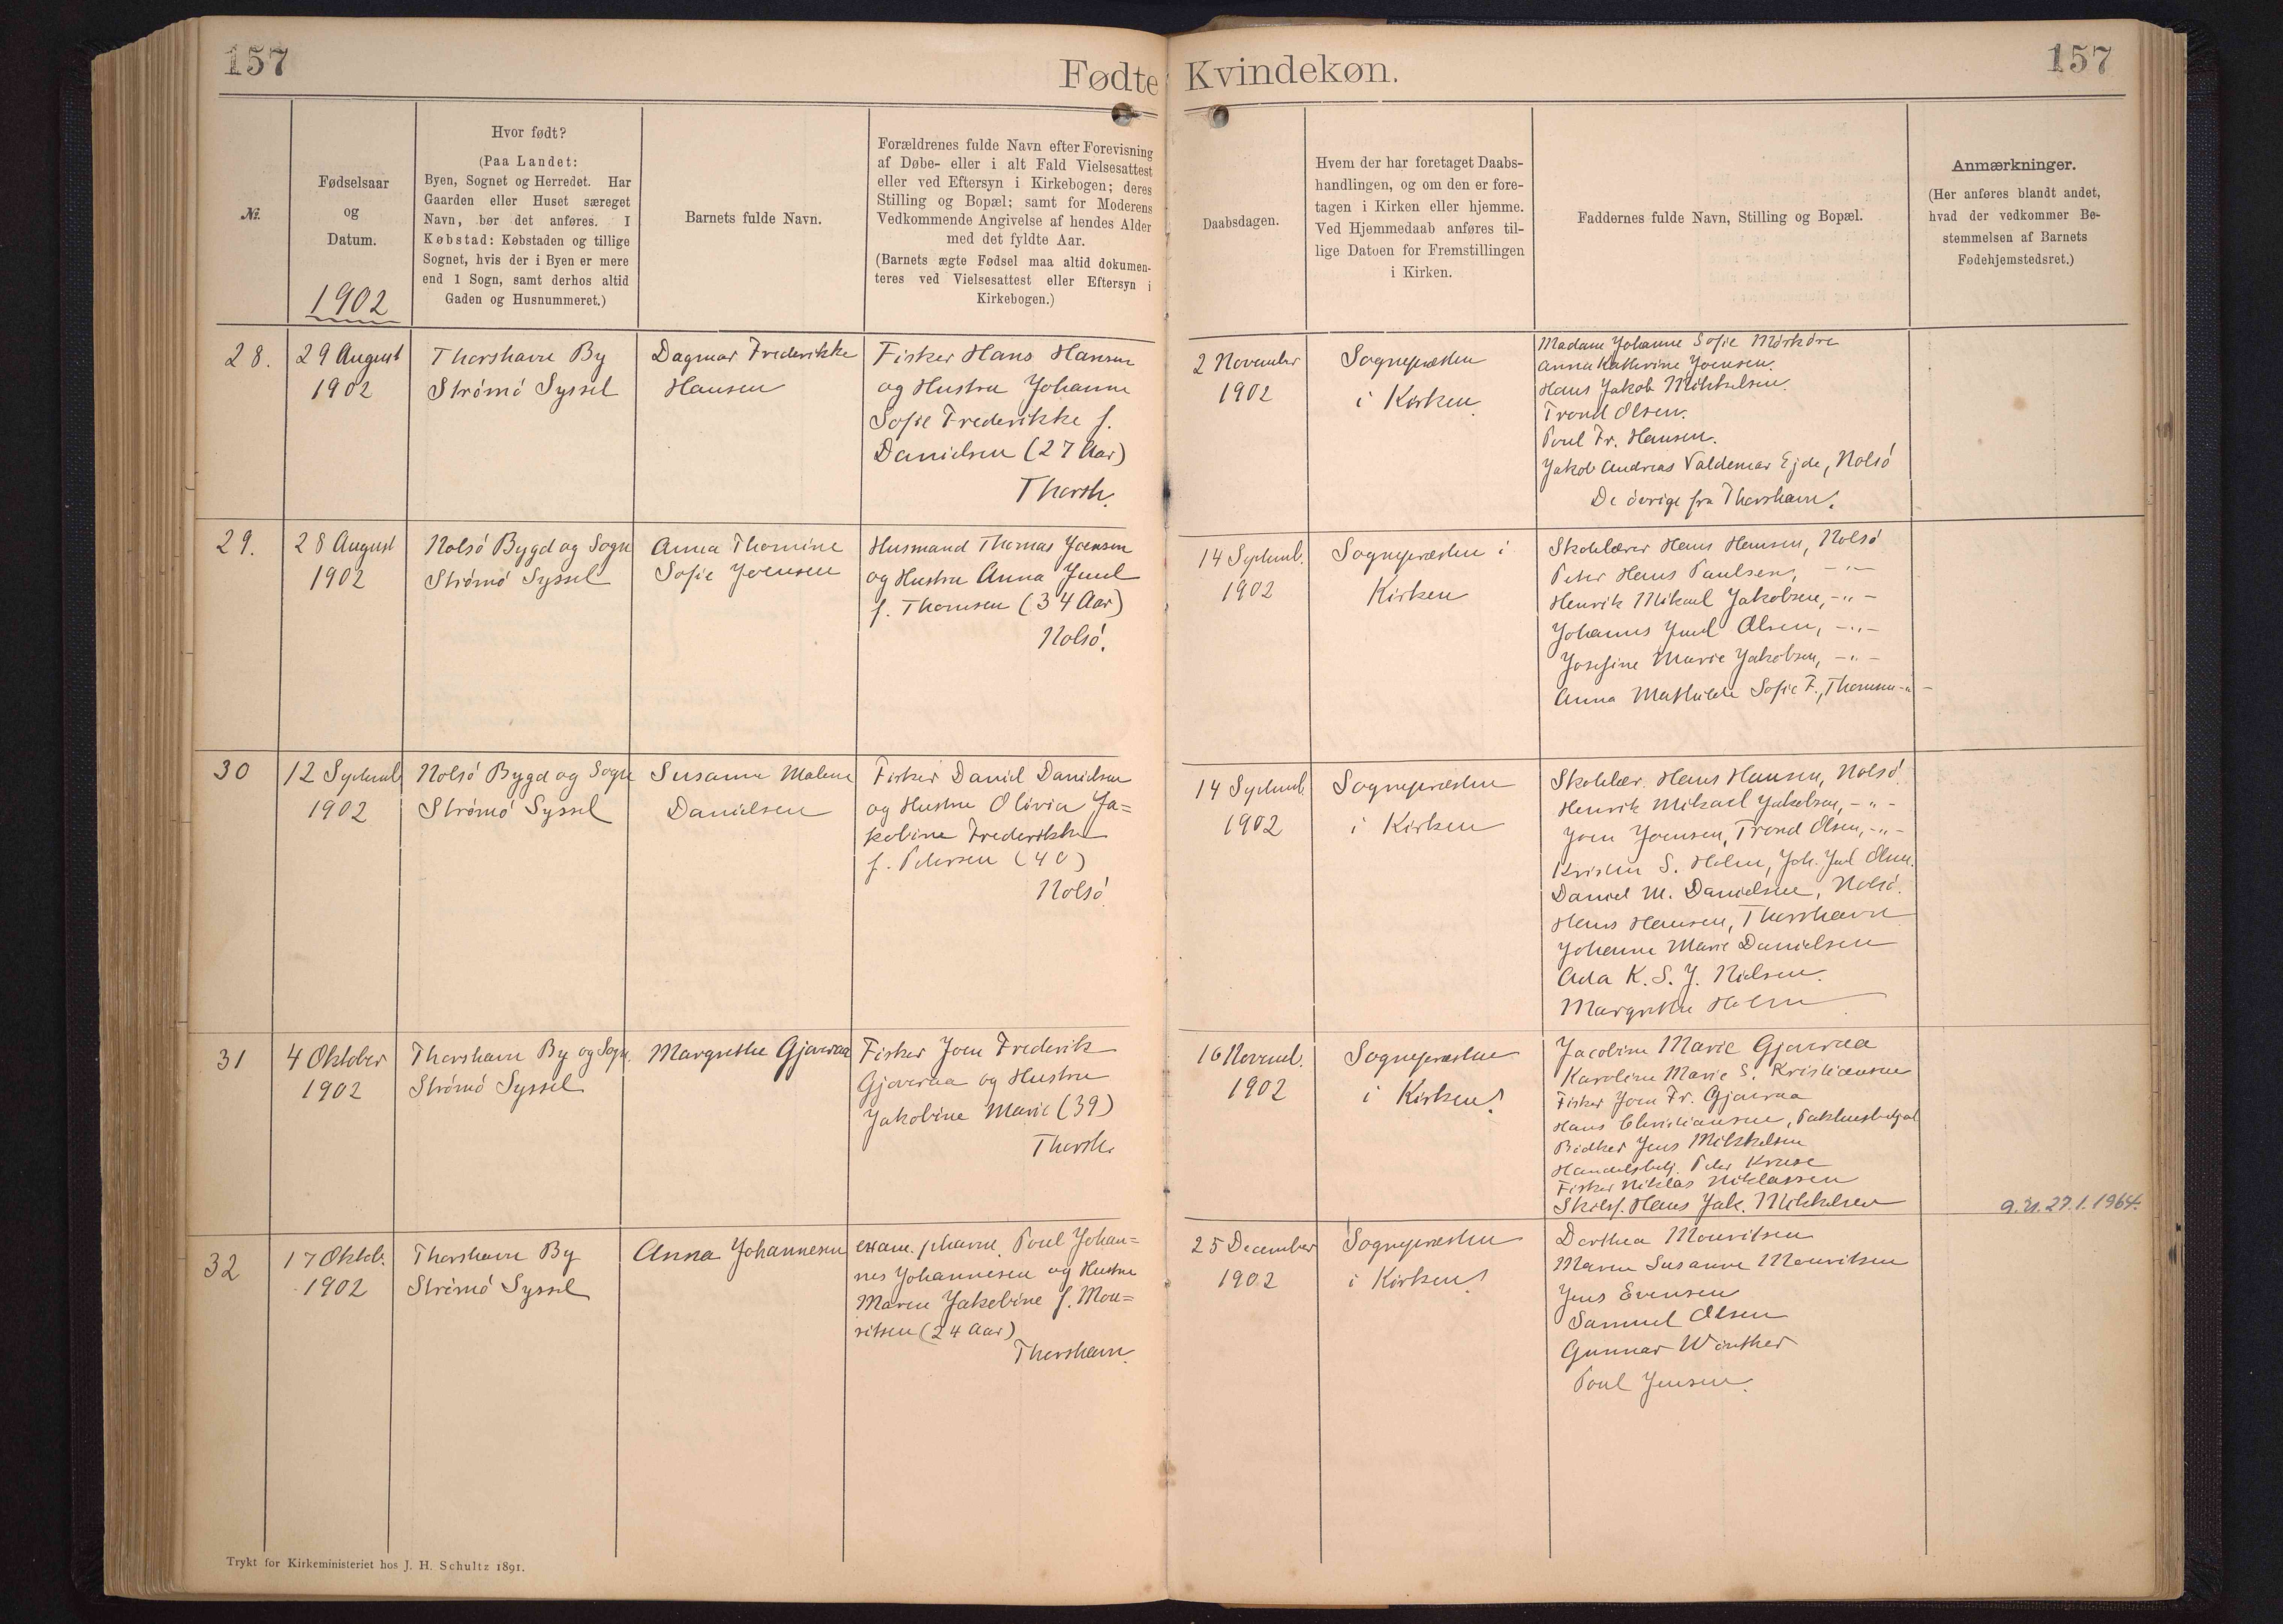 157
Fødte Kvindekøn.
157
№.
Fødselsaar
og
Datum.
1902
Hvor født?
(Paa Landet:
Byen, Sognet og Herredet. Har
Gaarden eller Huset særeget
Navn, bør det anføres. I
Købstad: Købstaden og tillige
Sognet, hvis der i Byen er mere
end 1 Sogn, samt derhos altid
Gaden og Husnummeret.)
Barnets fulde Navn.
Forældrenes fulde Navn efter Forevisning
af Døbe- eller i alt Fald Vielsesattest
eller ved Eftersyn i Kirkebogen; deres
Stilling og Bopæl; samt for Moderens
Vedkommende Angivelse af hendes Alder
med det fyldte Aar.
(Barnets ægte Fødsel maa altid dokumen-
teres ved Vielsesattest eller Eftersyn i
Kirkebogen.)
Daabsdagen.
Hvem der har foretaget Daabs-
handlingen, og om den er fore-
tagen i Kirken eller hjemme.
Ved Hjemmedaab anføres til-
lige Datoen for Fremstillingen
i Kirken.
Faddernes fulde Navn, Stilling og Bopæl.
Anmærkninger.
(Her anføres blandt andet,
hvad der vedkommer Be-
stemmelsen af Barnets
Fødehjemstedsret.)
28.
29 August
1902
Thorshavn By
Strömö Syssel
Dagmar Frederikke
Hansen
Fisker Hans Hansen
og Hustru Johanne
Sofie Frederikke f.
Danielsen (27 Aar)
Thorsh.
2 November
1902
Sognepræsten
i Kirken
Madam Johanne Sofie Mörköre
Anna Kathrine Joensen.
Hans Jakob Mikkelsen.
Trond Olsen.
Poul Fr. Hansen.
Jakob Andreas Valdemar Ejde, Nolsö
De övrige fra Thorshavn.
29.
28 August
1902
Nolsö Bygd og Sogn
Strömö Syssel
Anna Thomine
Sofie Joensen
Husmand Thomas Joensen
og Hustru Anna Juul
f. Thomsen (34 Aar)
Nolsö.
14 Septemb.
1902
Sognepræsten i
Kirken
Skolelærer Hans Hansen, Nolsö
Peter Hans Poulsen, -"-
Henrik Mikael Jakobsen, -"-
Johannes Juul Olsen, -"-
Josefine Marie Jakobsen, -"-
Anna Mathilde Sofie F. Thomsen -"-
30
12 Septemb
1902
Nolsö Bygd og Sogn
Strömö Syssel
Susanne Malene
Danielsen
Fisker Daniel Danielsen
og Hustru Olivia Ja=
kobine Frederikke
f. Petersen (40)
Nolsö
14 Septemb.
1902
Sognepræsten
i Kirken
Skolelær. Hans Hansen, Nolsö
Henrik Mikael Jakobsen, -"-
Joen Joensen, Trond Olsen, -"-
Kristen S. Holm, Joh. Juul Olsen.
Daniel M. Danielsen, Nolsö.
Hans Hansen, Thorshavn
Johanne Marie Danielsen
Ada K. S. J. Nielsen.
Margrethe Holm
31
4 Oktober
1902
Thorshavn By og Sogn.
Strömö Syssel
Margrethe Gjoveraa
Fisker Joen Frederik
Gjoveraa og Hustru
Jakobine Marie (39)
Thorsh.
16 Novemb.
1902
Sognepræsten
i Kirken
Jacobine Marie Gjoveraa
Karoline Marie S. Kristiansen
Fisker Joen Fr. Gjoveraa
Hans Christiansen,
Bödker Jens Mikkelsen
Handelsbetj. Peter Kruse
Fisker Niklas Niklassen
Hans Jak. Mikkelsen
32
17 Oktob.
1902
Thorshavn By
Strömö Syssel
Anna Johannesen
exam. pharm. Poul Johan=
nes Johannesen og Hustru
Maren Jakobine f. Mou=
ritsen (24 Aar)
Thorshavn.
25 December
1902
Sognepræsten
i Kirken
Dorthea Mouritsen
Maren Susanne Mouritsen
Jens Evensen
Samuel Olsen
Gunnar Winther
Poul Jensen.
27.1.1964.
Trykt for Kirkeministeriet hos J. H. Schultz 1891.